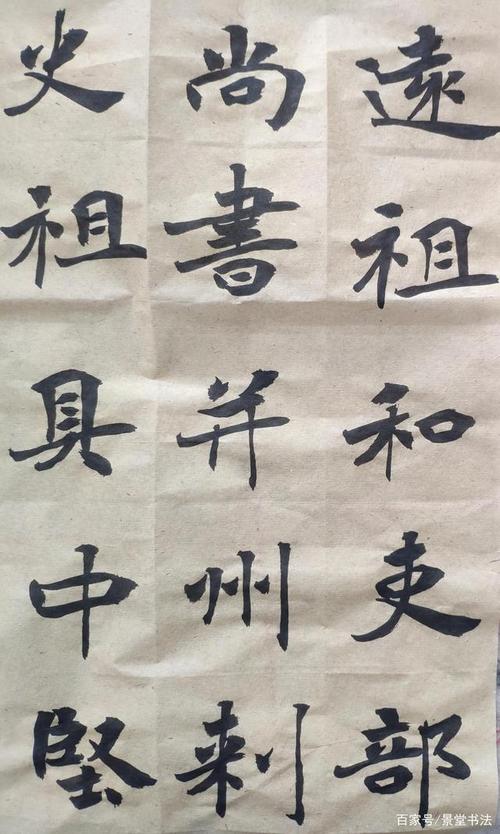 遠祖和吏部
尚書并州刺
史祖具中堅
百家号/景堂书法